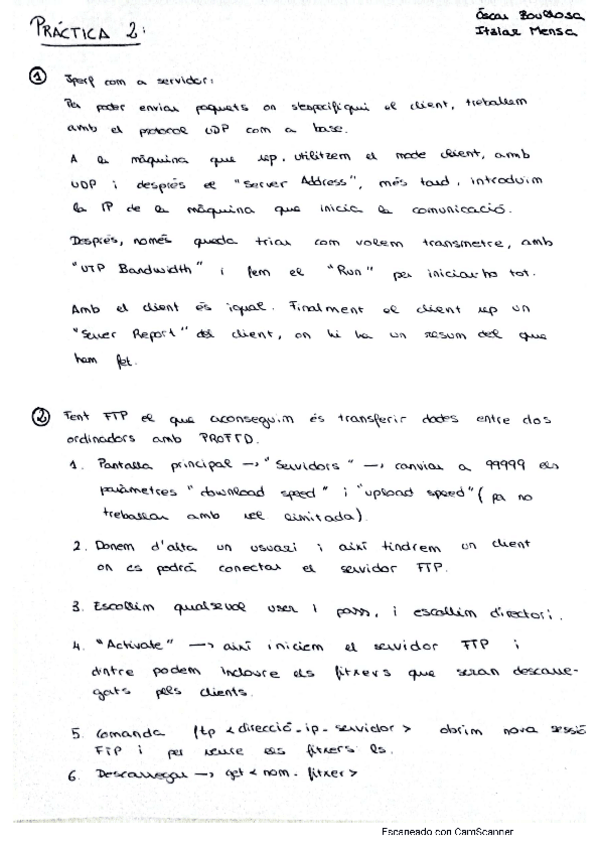 PRÀCTICA 2:
Óscar Boullosa
Itziar Mensa
1 Iperf com a servidor:
Per poder enviar paquets on s'especifiqui el client, treballem
amb el protocol UDP com a base.
A la màquina que rep, utilitzem el mode client, amb
UDP i després el "Server Address", més tard, introduim
la IP de la màquina que inicia la comunicació.
Després, només queda triar com volem transmetre, amb
"UTP Bandwidth" i fem el "Run" per iniciar-ho tot.
Amb el client és igual. Finalment el client rep un
"Server Report" del client, on hi ha un resum del que
hem fet.
2 Fent FTP el que aconseguim és transferir dades entre dos
ordinadors amb PROFTD.
1. Pantalla principal → "Servidors" → canviar a 99999 els
paràmetres "download speed" i "upload speed" (per no
treballar amb vel limitada).
2. Donem d'alta un usuari i així tindrem un client
on es podrà conectar el servidor FTP.
3. Escollim qualsevol user i pass, i escollim directori.
4. "Activate" → així iniciem el servidor FTP i
dintre podem incloure els fitxers que seran descarre-
gats pels clients.
5. Comanda ftp <direcció-ip-servidor> obrim nova sessió
FTP i per veure els fitxers ls.
6. Descarregar → get <nom-fitxer>
Escaneado con CamScanner